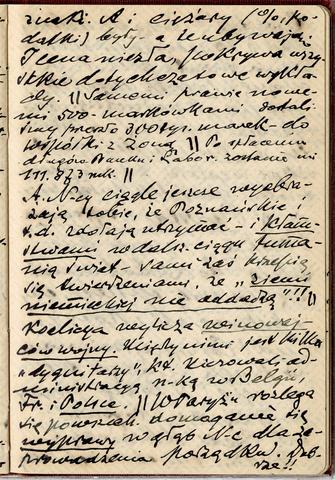 zuski. A i ciężary (%, po-
datki) były - a te ubywają.
I cena niezła, pokrywa wszy-
stkie dotychczasowe wykła-
dy. || Samemi prawie nowe-
mi 500-markówkami dostali
śmy przeszło 300 tys. marek - do
wspólki z Żoną || Po spłaceniu
długów Banku i Zabor. zostanie mi
111.873 mk. ||
A. N-cy ciągle jeszcze wyobra-
żają sobie, że Poznańskie i
t.d. zdołają utrzymać - i kłam-
stwami w dalsz. ciągu tuma-
nią świat - sami zaś krzepią
się twierdzeniami, że "ziemi
niemieckiej nie oddadzą"!!
Koalicja wylicza winowaj-
ców wojny. Między nimi jest kilku
"dygnitarzy", kt. kierowali ad-
ministracją n-ką w Belgji,
Fr. i Polsce. || W Paryżu rozlega
się powszech. domaganie się
wyprawy w głąb N-c dla za-
prowadzenia porządku. Dob-
rze!!